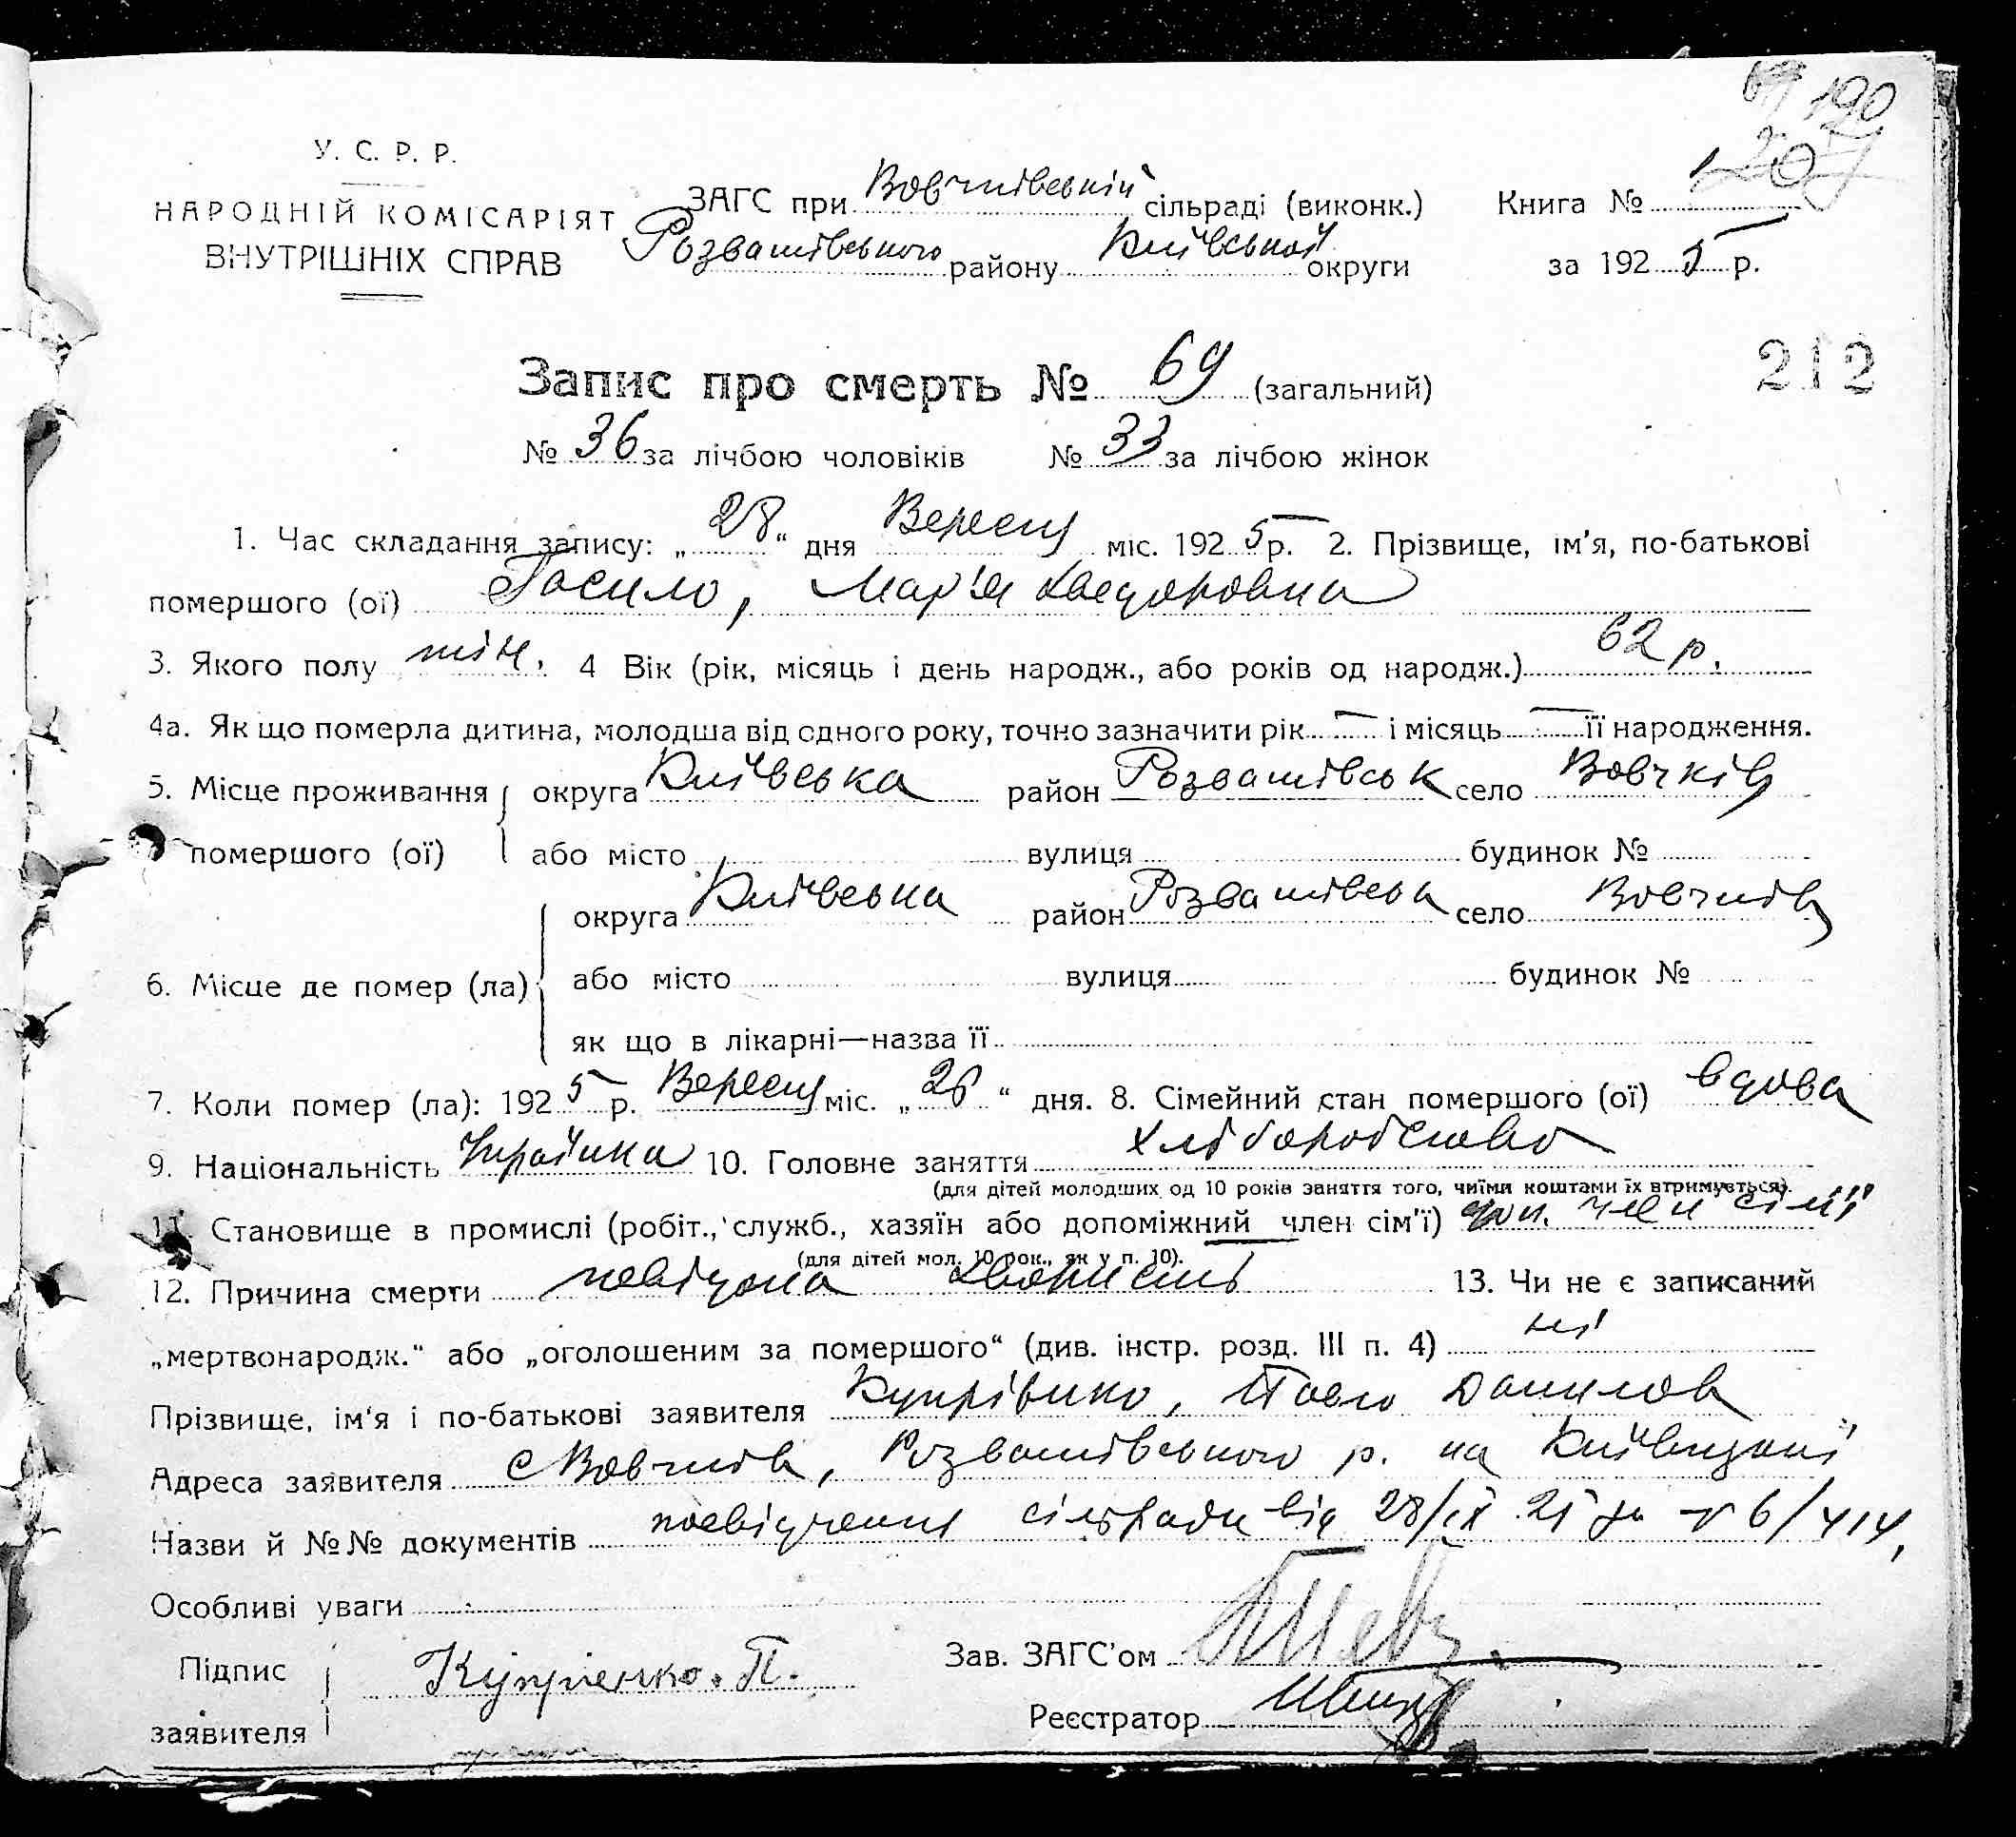 190
У. С. Р. Р.
НАРОДНІЙ КОМІСАРІЯТ
ВНУТРІШНІХ СПРАВ
ЗАГС при Вовчківській сільраді (виконк.)
Розважівського району Київської округи
Книга № 1
за 1925 р.
212
Запис про смерть № 69 (загальний)
№ 36 за лічбою чоловіків № 33 за лічбою жінок
1. Час складання запису: „28“ дня Вересня міс. 1925 р. 2. Прізвище, ім'я, по-батькові
помершого (ої) Мар'я Хведоровна
3. Якого полу жін. 4 Вік (рік, місяць і день народж., або років од народж.) 62 р.
4а. Як що померла дитина, молодша від одного року, точно зазначити рік — і місяць — її народження.
5. Місце проживання округа Київська район Розважівськ село Вовчків
помершого (ої) або місто вулиця будинок №
округа Київська район Розважівськ село Вовчків
6. Місце де помер (ла) або місто вулиця будинок №
як що в лікарні—назва її
7. Коли помер (ла): 1925 р. Вересня міс. „26“ дня. 8. Сімейний стан помершого (ої) вдова
9. Національність Українка 10. Головне заняття хліборобство
(для дітей молодших од 10 років заняття того, чиїми коштами їх втримується).
11. Становище в промислі (робіт., служб., хазяїн або допоміжний член сім'ї) доп. член сім'ї
(для дітей мол. 10 рок., як у п. 10).
12. Причина смерти невідома 13. Чи не є записаний
„мертвонародж.“ або „оголошеним за помершого“ (див. інстр. розд. III п. 4) ні
Прізвище, ім'я і по-батькові заявителя Купріěнко, Павло Данилов
Адреса заявителя с Вовчків, Розважівського р. на Київщині
Назви й №№ документів посвідчення сільради від 28/IX 25 за № 6/414,
Особливі уваги
Підпис заявителя Купрієнко. П.
Зав. ЗАГС'ом
Реєстратор